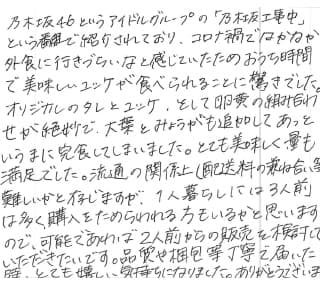 乃木坂46というアイドルグループの「乃木坂工事中」
という番組で紹介されており、コロナ禍でなかなか
外食に行きづらいなと感じていたためおうち時間
で美味しいユッケが食べられることに驚きでした。
オリジナルのタレとユッケ、そして卵黄の組み合わ
せが絶妙で、大葉とみょうがも追加してあっと
いうまに完食してしまいました。とても美味しく量も
満足でした。流通の関係上(配送料の兼ね合い等)
難しいかと存じますが、1人暮らしには3人前
は多く購入をためらわれる方もいるかと思います
ので、可能であれば2人前からの販売を検討して
いただきたいです。品質や梱包等丁寧で届いた
時、とても嬉しい気持ちになりました。ありがとうございま